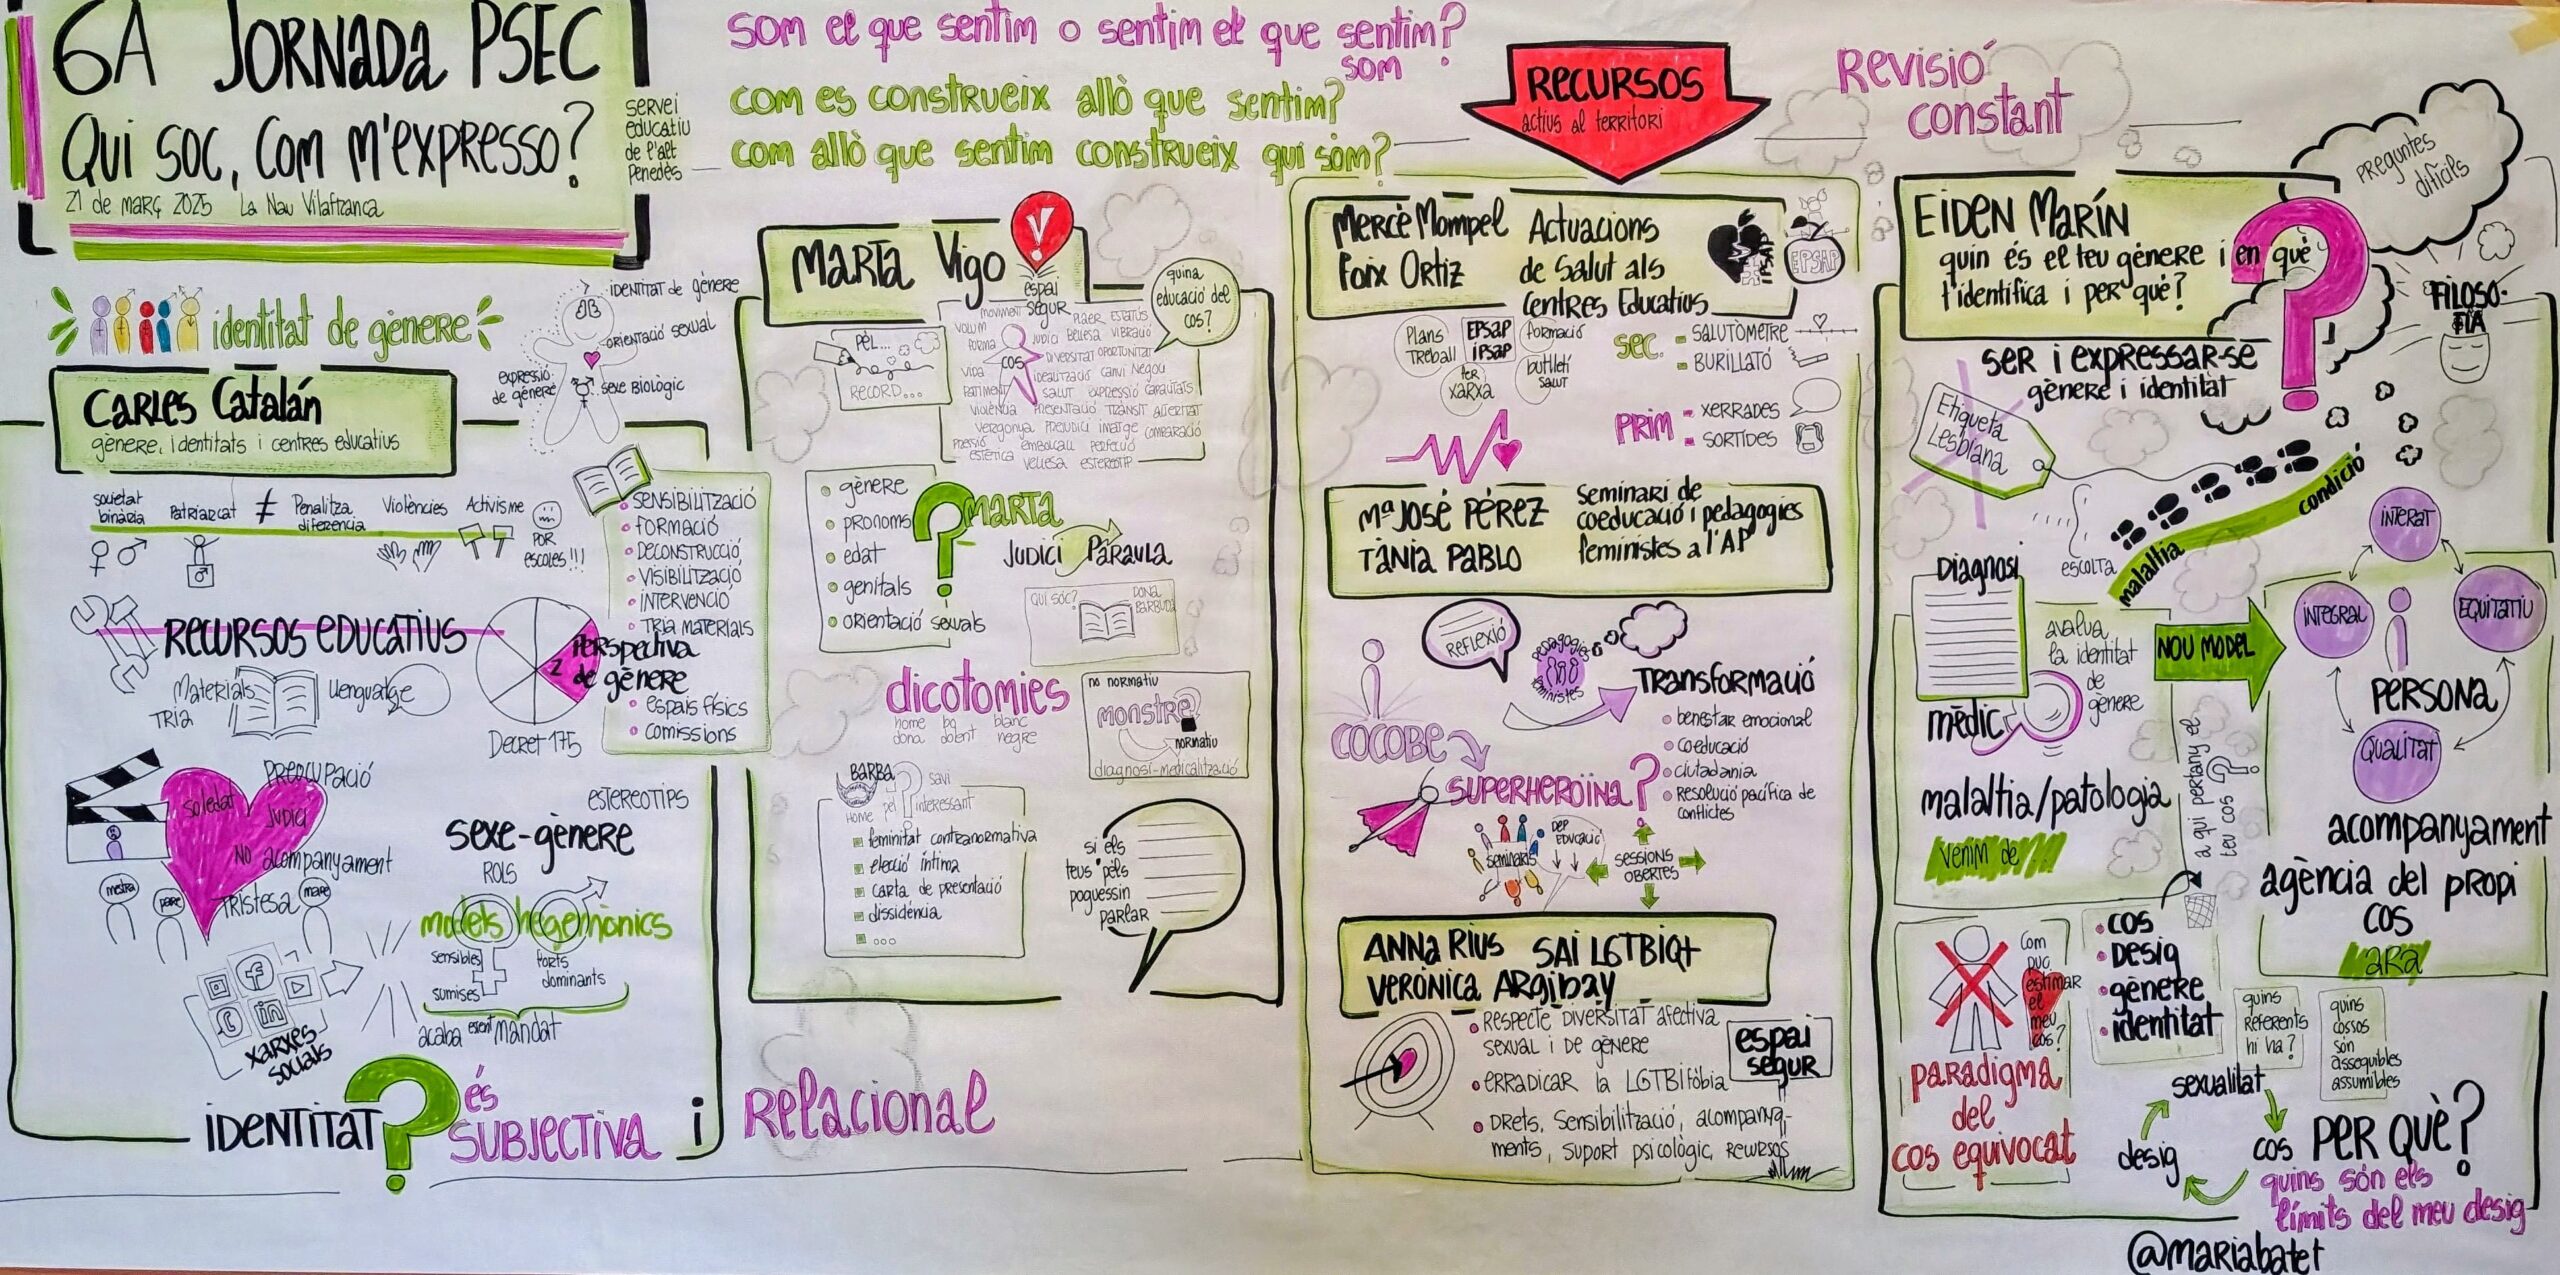 6A JORNADA PSEC
Qui soc, com m'expresso?
21 de març 2025 La Nau Vilafranca
servei
educatiu
de l'alt
Penedès
som el que sentim o sentim el que sentim?
som
com es construeix allò que sentim?
com allò que sentim construeix qui sóm?
identitat de gènere
identitat de gènere
orientació sexual
expressió
de gènere
sexe biològic
Carles Catalán
gènere, identitats i centres educatius
societat
binària
Patriarcat
≠
Penalitza
diferència
Violències
Activisme
POR
escoles!!!
SENSIBILITZACIÓ
FORMACIÓ
DECONSTRUCCIÓ
VISIBILITZACIÓ
INTERVENCIÓ
TRIA MATERIALS
RECURSOS EDUCATIUS
Materials
TRIA
llenguatge
Perspectiva
de gènere
2
espais físics
comissions
Decret 175
soledat
PREOCUPACIÓ
JUDICI
NO acompanyament
TRISTESA
mestra
pare
mare
xarxes
socials
ESTEREOTIPS
sexe-gènere
ROLS
models hegemònics
sensibles
sumises
forts
dominants
acaba essent mandat
IDENTITAT
?
és
SUBJECTIVA
i
Relacional
Marta Vigo
V
espai
segur
quina
educació del
cos?
PÈL...
RECORD...
moviment
PLAER ESTATUS
VOLUM
FORMA
JUDICI BELLESA VIBRACIÓ
COS
DIVERSITAT OPORTUNITAT
VIDA
IDEALITZACIÓ CANVI NEGOCI
PATIMENT
SALUT EXPRESSIÓ CAPACITATS
VIOLÈNCIA PRESENTACIÓ TRÀNSIT ALTERITAT
VERGONYA PREJUDICI IMATGE COMPARACIÓ
PRESSIÓ
ESTÈTICA
EMBOLCALL PERFECCIÓ
VELLESA ESTEREOTIP
gènere
pronoms
edat
genitals
orientació sexuals
?
MARTA
JUDICI PARAULA
QUI SÓC?
DONA
BARBUDA
dicotomies
home
dona
bo
dolent
blanc
negre
no normatiu
monstre
normatiu
diagnosi-medicalització
BARBA
HOME
pèl
savi
interessant
feminitat contranormativa
elecció íntima
carta de presentació
dissidència
...
si els
teus pèls
poguessin
parlar
RECURSOS
actius al territori
Mercè Mompel
Foix Ortiz
Actuacions
de Salut als
Centres Educatius
EPSAP
Plans
Treball
EPSAP
IPSAP
formació
fer
xarxa
butlletí
SALUT
SEC.
SALUTÒMETRE
BURILLATÓ
PRIM
XERRADES
SORTIDES
Mª José Pérez
Tània Pablo
Seminari de
coeducació i pedagogies
feministes a l'AP
REFLEXIÓ
pedagogies
feministes
TRANSFORMACIÓ
benestar emocional
coeducació
ciutadania
Resolució pacífica de
conflictes
COCOBE
SUPERHEROÏNA?
seminaris
DEP
EDUCACIÓ
SESSIONS
OBERTES
Anna Rius
Verònica Argibay
SAI LGTBIQ+
RESPECTE DIVERSITAT afectiva
sexual i de gènere
espai
segur
ERRADICAR la LGTBIfòbia
DRETS, Sensibilització, acompanya-
ments, suport psicològic, recursos
REVISIÓ
constant
Eiden Marín
quin és el teu gènere i en què
t'identifica i per què?
PREGUNTES
difícils
FILOSO-
FIA
SER i expressar-se
gènere i identitat
Etiqueta
Lesbiana
escolta
malaltia
condició
Diagnosi
mèdic
avalua
la identitat
de
gènere
malaltia/patologia
venim de...
NOU MODEL
INTEGRAL
EQUITATIU
QUALITAT
PERSONA
acompanyament
agència del propi
cos
ara
a qui pertany el
teu cos?
Com
puc
estimar
el
meu
cos?
paradigma
del
cos equivocat
cos
desig
gènere
identitat
quins
referents
hi ha?
quins
cossos
són
assequibles
assumibles
sexualitat
desig
cos
PER QUÈ?
quins són els
límits del meu desig
@mariabatet